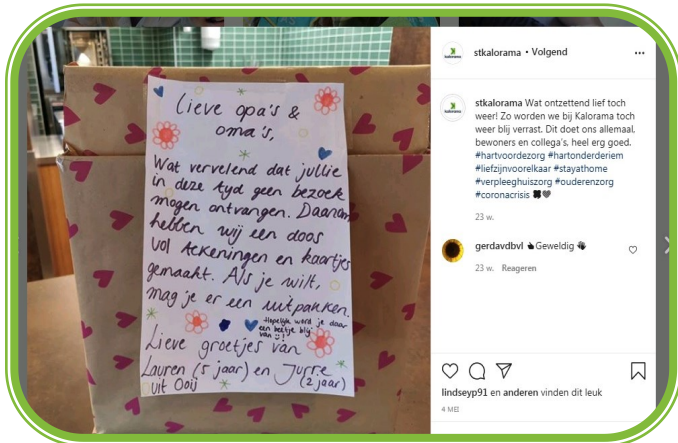 Lieve opa's &
oma's,
Wat vervelend dat jullie
in deze tyd geen bezoek
mogen ontvangen. Daarom
hebben wij een doos
vol tekeningen en kaartjes
gemaakt. Als je wilt,
mag je er een uitpakken.
Hopelijk word je daar
een beetje blij
van !
Lieve groetjes van
Lauren (5 jaar) en Jurre
(2 jaar)
uit Ooij
kalorama
stkalorama • Volgend
...
kalorama
stkalorama Wat ontzettend lief toch
weer! Zo worden we bij Kalorama toch
weer blij verrast. Dit doet ons allemaal,
bewoners en collega's, heel erg goed.
#hartvoordezorg #hartonderderiem
#liefzijnvoorelkaar #stayathome
#verpleeghuiszorg #ouderenzorg
#coronacrisis 🍀🖤
23 w.
gerdavdbvl 👍Geweldig 👏
23 w. Reageren
lindseyp91 en anderen vinden dit leuk
4 MEI